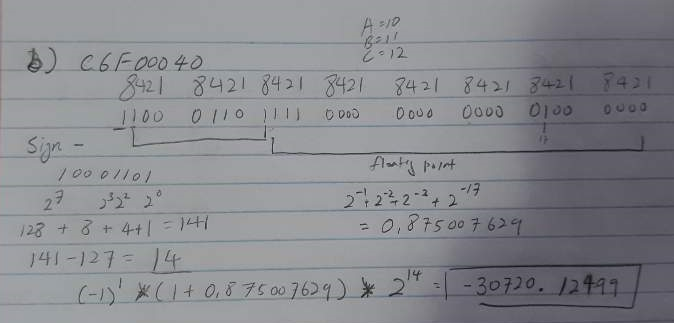 A=10
B=11
C=12
b) C6F00040
8421 8421 8421 8421 8421 8421 8421 8421
1100 0110 1111 0000 0000 0000 0100 0000
17
Sign -
floating point
10001101
2^7 2^3 2^2 2^0
2^-1 + 2^-2 + 2^-3 + 2^-17
128 + 8 + 4+1 = 141
= 0,875007629
141-127 = 14
(-1)^1 * (1 + 0,875007629) * 2^14 = -30720.12499